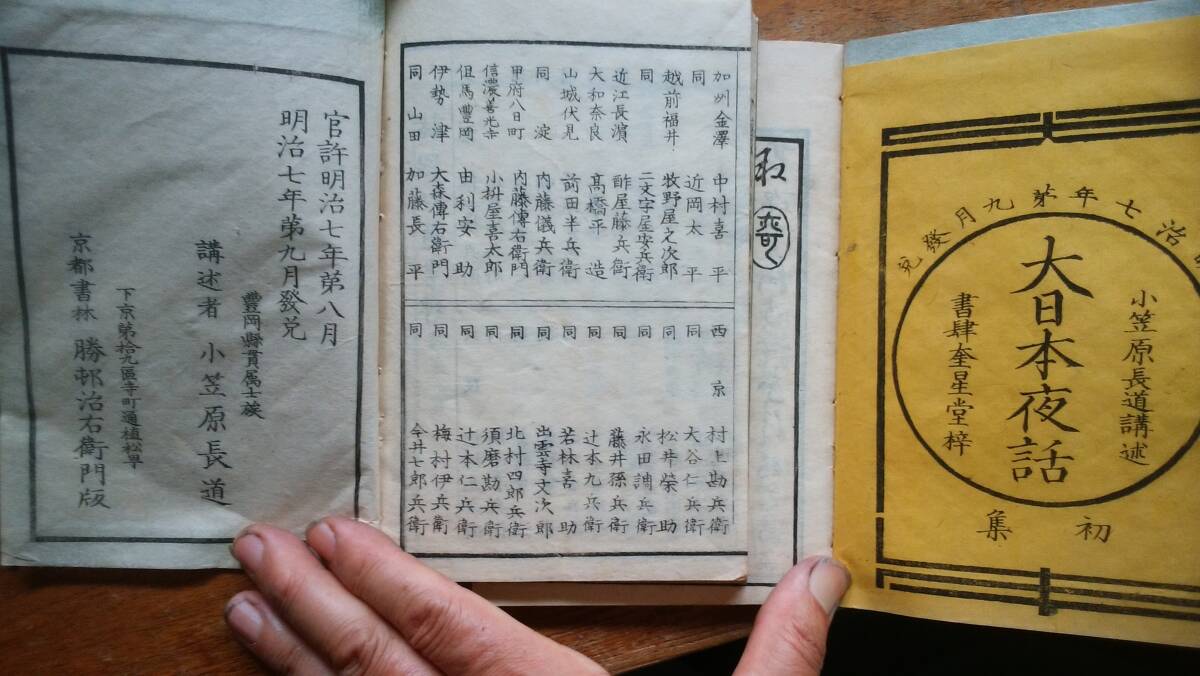 治七年第九月發兌
小笠原長道講述
大日本夜話
書肆奎星堂梓
初集
取
加州金澤 中村喜平
同 近岡太平
越前福井 牧野屋之次郎
同 二文字屋安兵衛
近江長濱 酢屋藤兵衛
大和奈良 髙橋平造
山城伏見 前田半兵衛
同 淀 内藤儀兵衛
甲府八日町 内藤傳右衛門
信濃善光寺 小枡屋喜太郎
但馬豐岡 由利安助
伊勢津 大森傳右衛門
同 山田 加藤長平
西京 村上勘兵衛
同 大谷仁兵衛
同 松井榮助
同 永田調兵衛
同 藤井孫兵衛
同 辻本九兵衛
同 若林喜助
同 出雲寺文次郎
同 北村四郎兵衛
同 須磨勘兵衛
同 辻本仁兵衛
同 梅村伊兵衛
同 今井七郎兵衛
官許明治七年第八月
明治七年第九月發兌
豐岡縣貫属士族
講述者 小笠原長道
下京第拾九區寺町通植松町
京都書林 勝邨治右衛門版